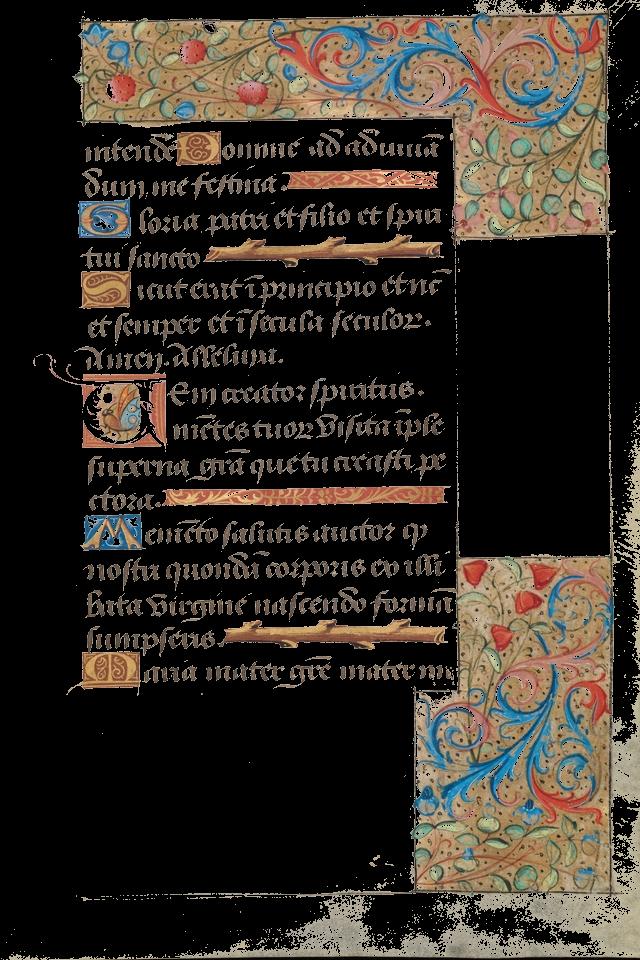 intende Domine ad adiuuā
dum me festina.
Gloria patri et filio et spiri
tui sancto
Sicut erat ī principio et nūc
et semper et ī secula seculoꝝ.
Amen. Alleluya.
Veni creator spiritus.
mētes tuoꝝ visita īple
superna grā que tu creasti pe
ctora.
Memēto salutis auctor ꝙ
nostri quondā corporis ex illi
bata virgine nascendo formā
sumpseris.
Maria mater grē mater mi